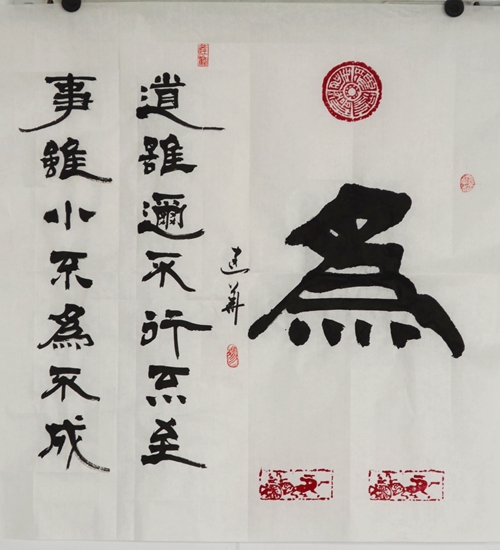 為
建華
道雖邇不行不至
事雖小不為不成